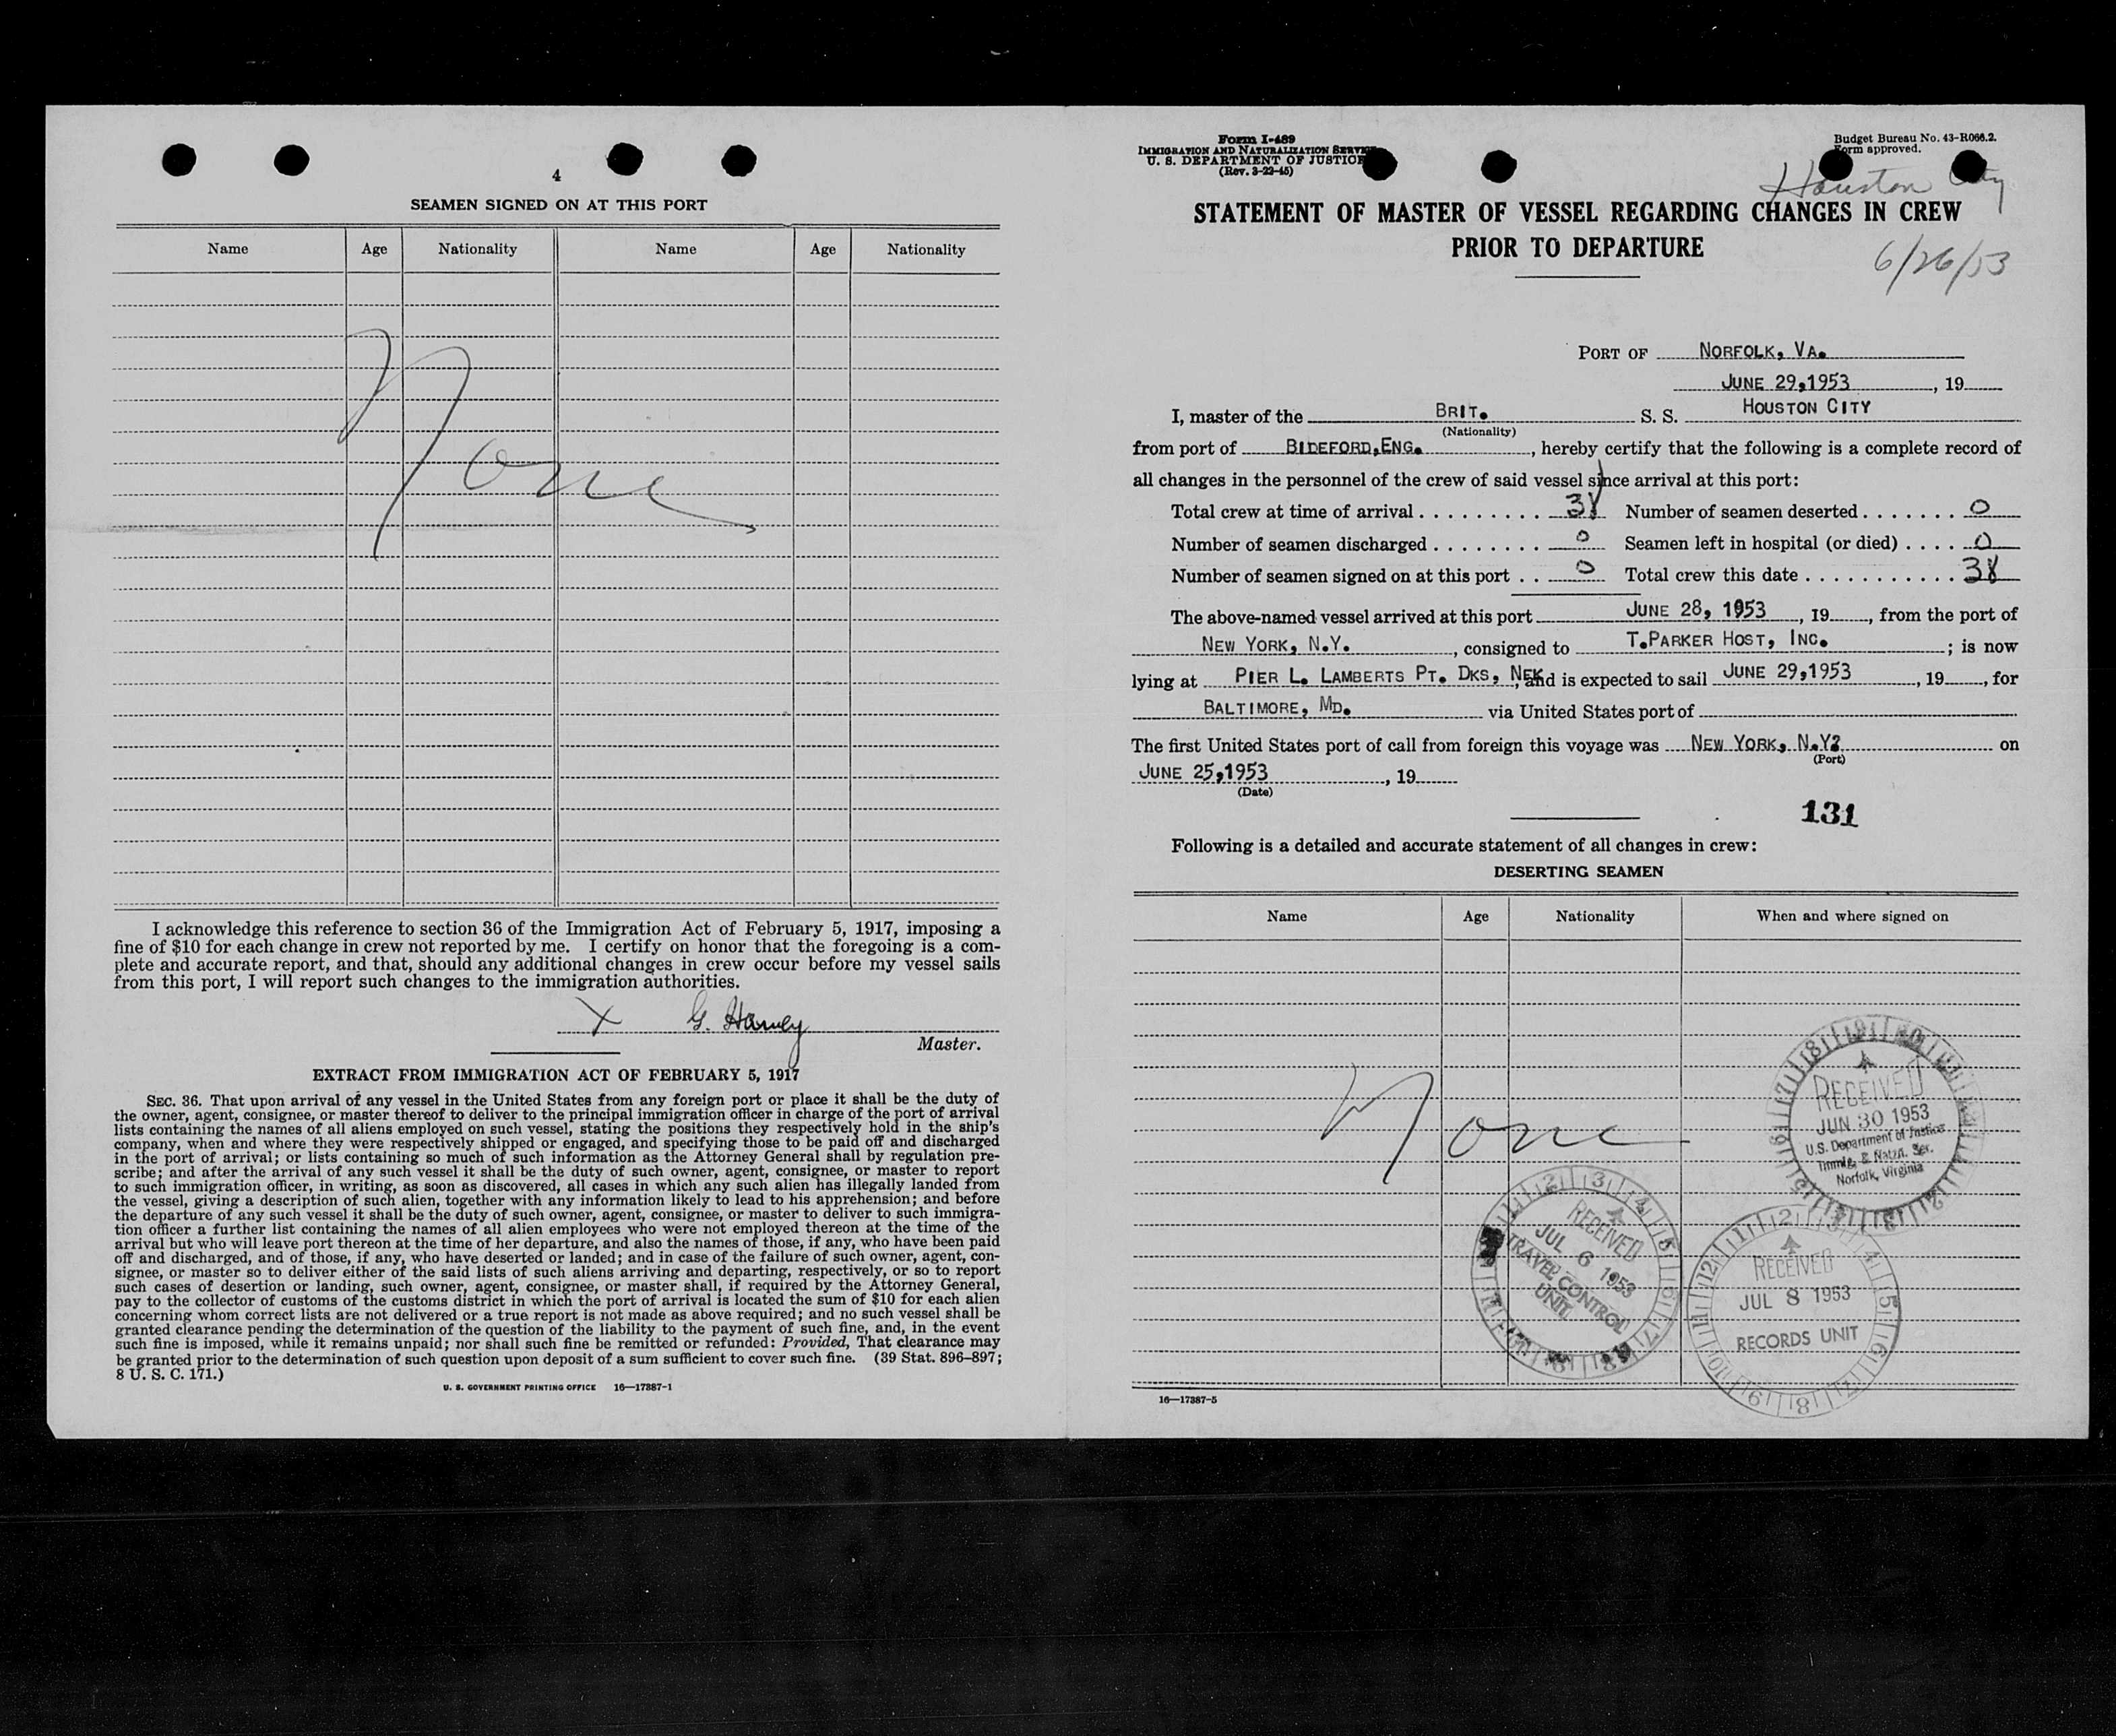 4
SEAMEN SIGNED ON AT THIS PORT
Name Age Nationality Name Age Nationality
None
I acknowledge this reference to section 36 of the Immigration Act of February 5, 1917, imposing a
fine of $10 for each change in crew not reported by me. I certify on honor that the foregoing is a com-
plete and accurate report, and that, should any additional changes in crew occur before my vessel sails
from this port, I will report such changes to the immigration authorities.
X G. Harvey
Master.
EXTRACT FROM IMMIGRATION ACT OF FEBRUARY 5, 1917
SEC. 36. That upon arrival of any vessel in the United States from any foreign port or place it shall be the duty of
the owner, agent, consignee, or master thereof to deliver to the principal immigration officer in charge of the port of arrival
lists containing the names of all aliens employed on such vessel, stating the positions they respectively hold in the ship's
company, when and where they were respectively shipped or engaged, and specifying those to be paid off and discharged
in the port of arrival; or lists containing so much of such information as the Attorney General shall by regulation pre-
scribe; and after the arrival of any such vessel it shall be the duty of such owner, agent, consignee, or master to report
to such immigration officer, in writing, as soon as discovered, all cases in which any such alien has illegally landed from
the vessel, giving a description of such alien, together with any information likely to lead to his apprehension; and before
the departure of any such vessel it shall be the duty of such owner, agent, consignee, or master to deliver to such immigra-
tion officer a further list containing the names of all alien employees who were not employed thereon at the time of the
arrival but who will leave port thereon at the time of her departure, and also the names of those, if any, who have been paid
off and discharged, and of those, if any, who have deserted or landed; and in case of the failure of such owner, agent, con-
signee, or master so to deliver either of the said lists of such aliens arriving and departing, respectively, or so to report
such cases of desertion or landing, such owner, agent, consignee, or master shall, if required by the Attorney General,
pay to the collector of customs of the customs district in which the port of arrival is located the sum of $10 for each alien
concerning whom correct lists are not delivered or a true report is not made as above required; and no such vessel shall be
granted clearance pending the determination of the question of the liability to the payment of such fine, and, in the event
such fine is imposed, while it remains unpaid; nor shall such fine be remitted or refunded: Provided, That clearance may
be granted prior to the determination of such question upon deposit of a sum sufficient to cover such fine. (39 Stat. 896–897;
8 U. S. C. 171.)
U. S. GOVERNMENT PRINTING OFFICE 16—17387-1
Form I-489
IMMIGRATION AND NATURALIZATION SERVICE
U. S. DEPARTMENT OF JUSTICE
(Rev. 3-22-45)
Budget Bureau No. 43-R066.2.
Form approved.
Houston City
STATEMENT OF MASTER OF VESSEL REGARDING CHANGES IN CREW
PRIOR TO DEPARTURE
6/26/53
PORT OF NORFOLK, VA.
JUNE 29,1953, 19
I, master of the BRIT. S. S. HOUSTON CITY
(Nationality)
from port of BIDEFORD,ENG., hereby certify that the following is a complete record of
all changes in the personnel of the crew of said vessel since arrival at this port:
Total crew at time of arrival 38 Number of seamen deserted 0
Number of seamen discharged 0 Seamen left in hospital (or died) 0
Number of seamen signed on at this port 0 Total crew this date 38
The above-named vessel arrived at this port JUNE 28, 1953, 19, from the port of
NEW YORK, N.Y., consigned to T.PARKER HOST, INC.; is now
lying at PIER L. LAMBERTS PT. DKS, NFK, and is expected to sail JUNE 29,1953, 19, for
BALTIMORE, MD. via United States port of
The first United States port of call from foreign this voyage was NEW YORK, N.Y? on
(Port)
JUNE 25,1953, 19
(Date)
131
Following is a detailed and accurate statement of all changes in crew:
DESERTING SEAMEN
Name Age Nationality When and where signed on
None
RECEIVED
JUN 30 1953
U.S. Department of Justice
Immig. & Natzn. Ser.
Norfolk, Virginia
RECEIVED
JUL 6 1953
TRAVEL CONTROL
UNIT
RECEIVED
JUL 8 1953
RECORDS UNIT
16—17387-5